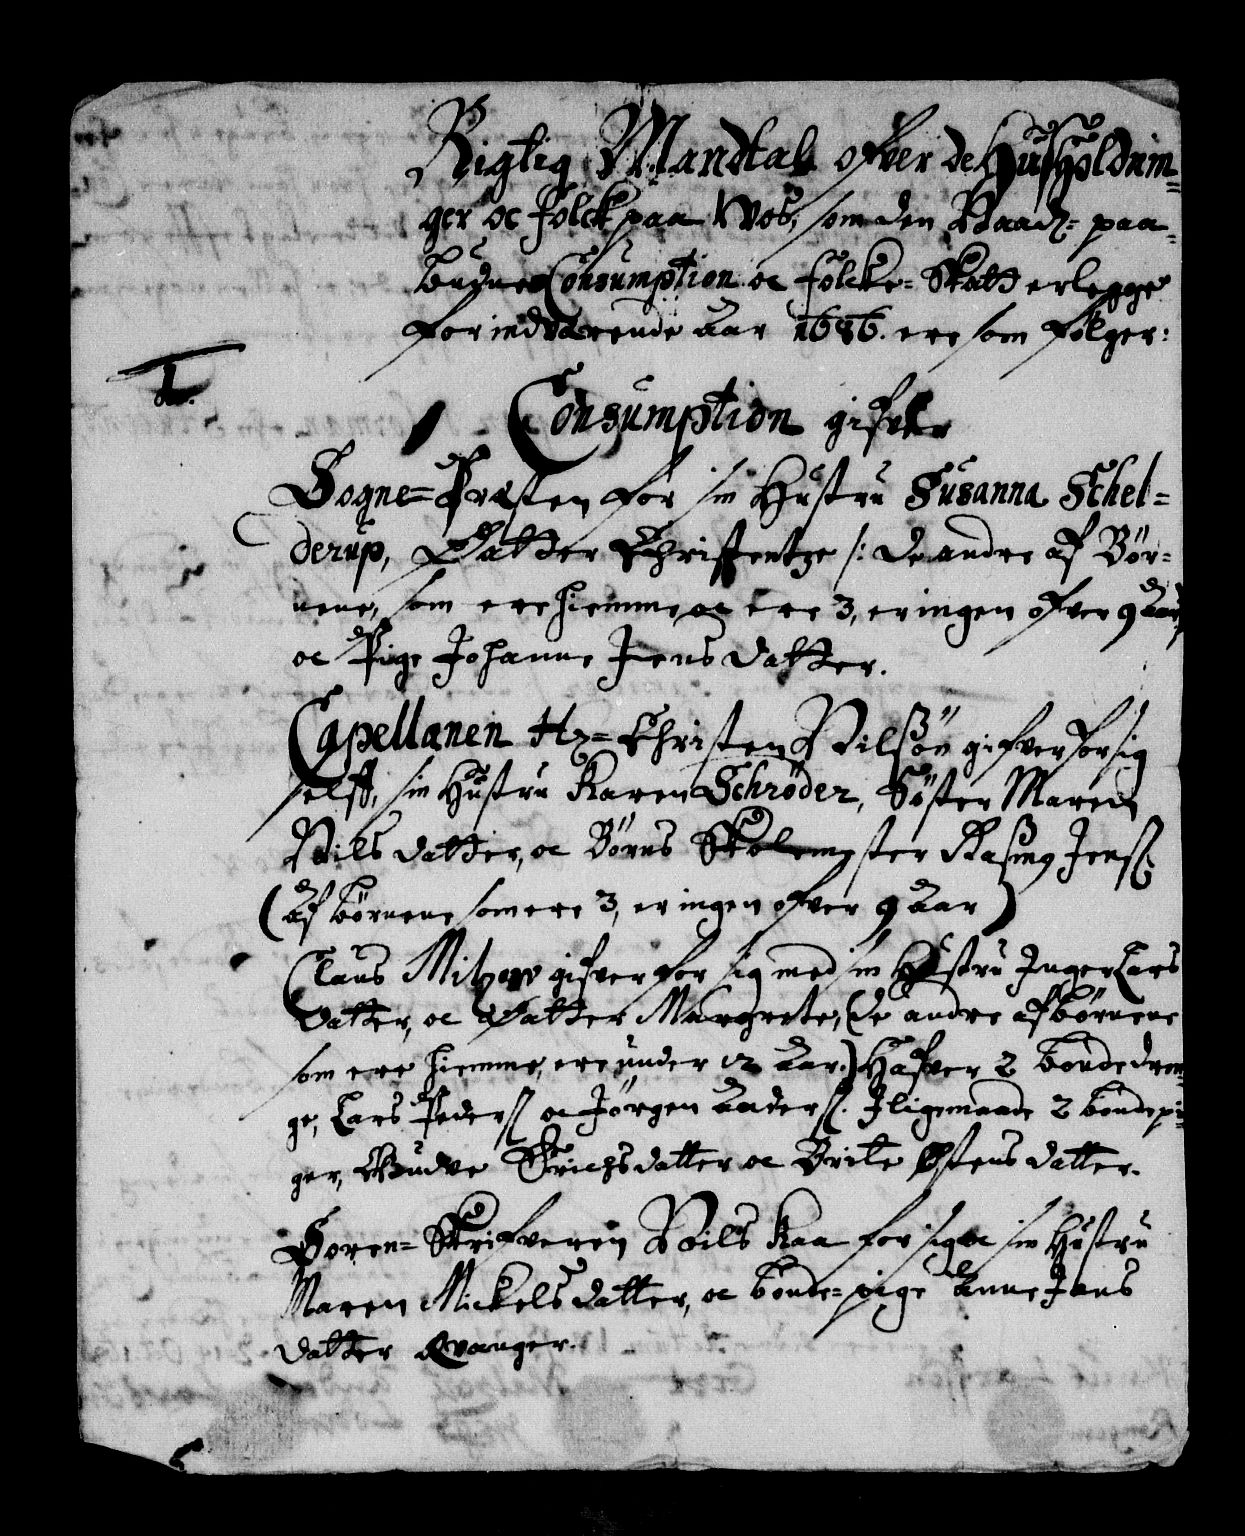 Rigtig Mandtal ofver de Hußholdnin=
ger oc folck paa Wos, som den Naadz= paa=
budne Consumption oc folcke= Skatt erlegge
for indværende Aar 1686. ere som følger:
1.
Consumption gifver
Sogne=Præsten for sin Hustru Susanna Schel=
derup, Datter Christentze /: De andre af Bör=
nene, som ere hiemme oc ere 3, er ingen ofver 9 Aar/
oc Pige Johanne Jens datter.
Capellanen Hr= Christen Nilßön gifver for sig
self, sin Hustru Karen Schröder, Söster Maren
Nils datter, oc Börns Skolemester Rasmg Jenß.
(Af börnene som ere 3, er ingen ofver 9 Aar)
Claus Miltzow gifver for sig med sin Hustru Inger Lars
datter, oc Datter Margrete, (de andre af börnene
som ere hiemme, ere under 12 Aar.) Hafver 2 bondedren=
ge, Lars Peders. oc Jörgen Anders. Iligemaade 2 bondepi=
ger, Gudve Erichs datter oc Brite Østens datter.
Soren= Skrifveren Nils Kaa for sig oc sin Hustru
Maren Mickels datter, oc bonde=pige Anne Jans
datter Qvanger.